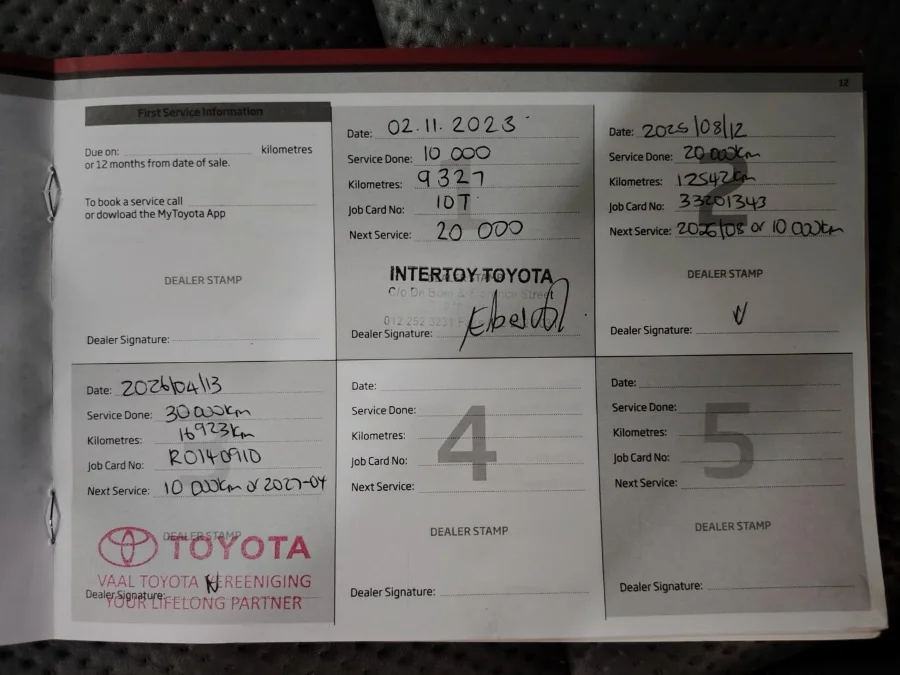 12
First Service Information
Due on: kilometres
or 12 months from date of sale.
To book a service call
or dowload the MyToyota App
DEALER STAMP
Dealer Signature:
1
Date: 02.11.2023
Service Done: 10 000
Kilometres: 9327
Job Card No: 10T
Next Service: 20 000
DEALER STAMP
INTERTOY TOYOTA
Street
Dealer Signature:
2
Date: 2025/08/12
Service Done: 20 000km
Kilometres: 12542km
Job Card No: 33201343
Next Service: 2026/08 or 10 000km
DEALER STAMP
Dealer Signature:
Date: 2026/04/13
Service Done: 30 000km
Kilometres: 16923km
Job Card No: RO140910
Next Service: 10 000km or 2027-04
DEALER STAMP
TOYOTA
VAAL TOYOTA VEREENIGING
Dealer Signature:
YOUR LIFELONG PARTNER
4
Date:
Service Done:
Kilometres:
Job Card No:
Next Service:
DEALER STAMP
Dealer Signature:
5
Date:
Service Done:
Kilometres:
Job Card No:
Next Service:
DEALER STAMP
Dealer Signature: